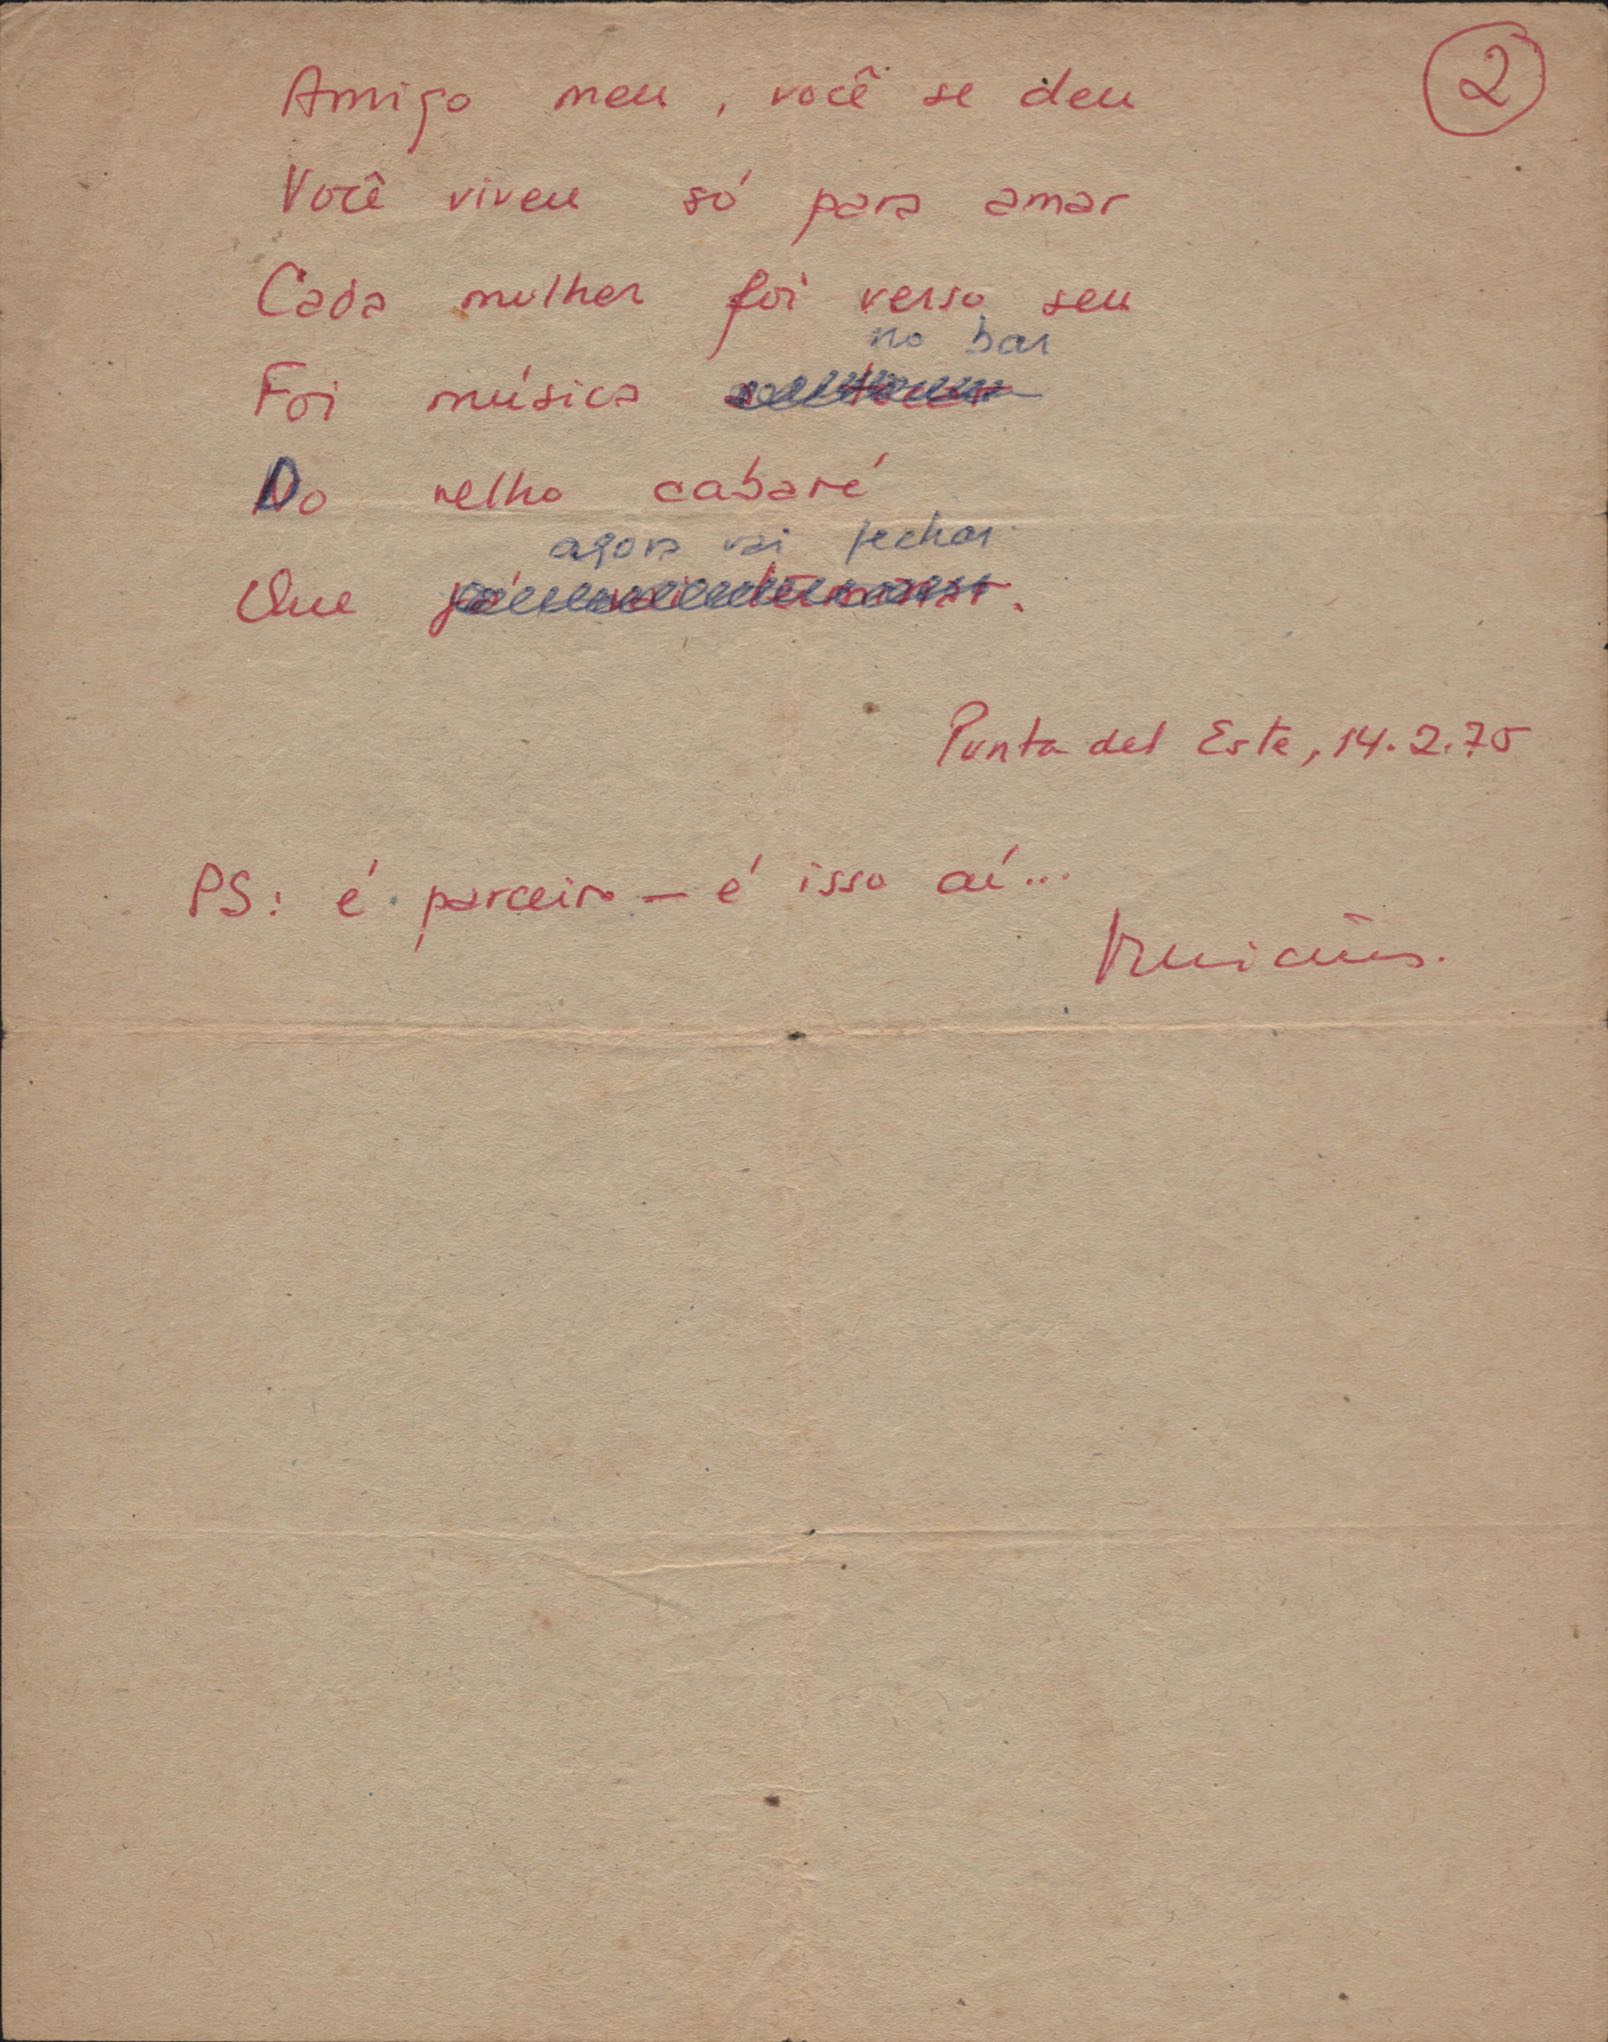 2
Amigo meu, você se deu
Você viveu só para amar
Cada mulher foi verso seu
no bar
Foi música
Do velho cabaré
agora vai fechar
Que já vai terminar.
Punta del Este, 14.2.75
PS: é parceiro — é isso aí...
Vinicius.